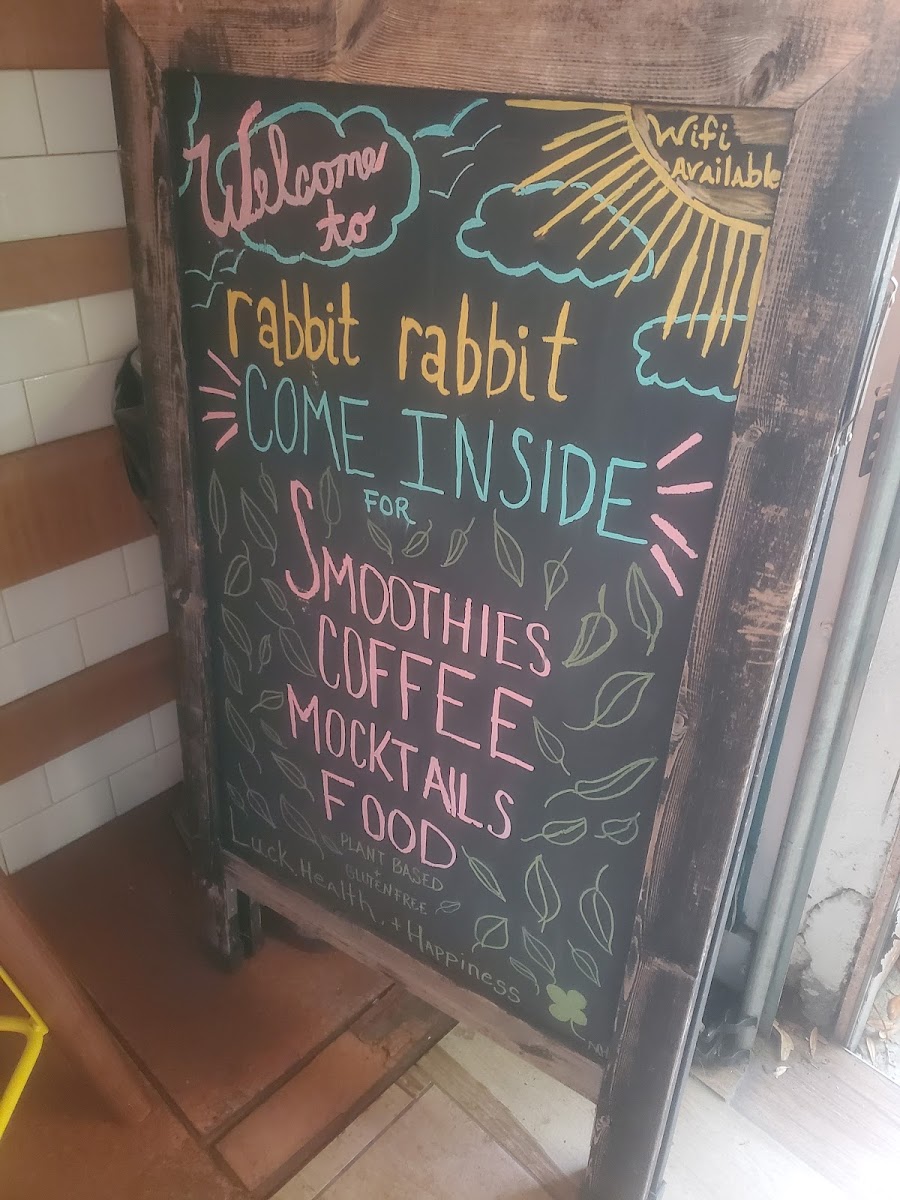 Welcome
to
Wifi
available
rabbit rabbit
COME INSIDE
FOR
SMOOTHIES
COFFEE
MOCKTAILS
FOOD
PLANT BASED
+
GLUTEN FREE
Luck, Health, + Happiness
NH